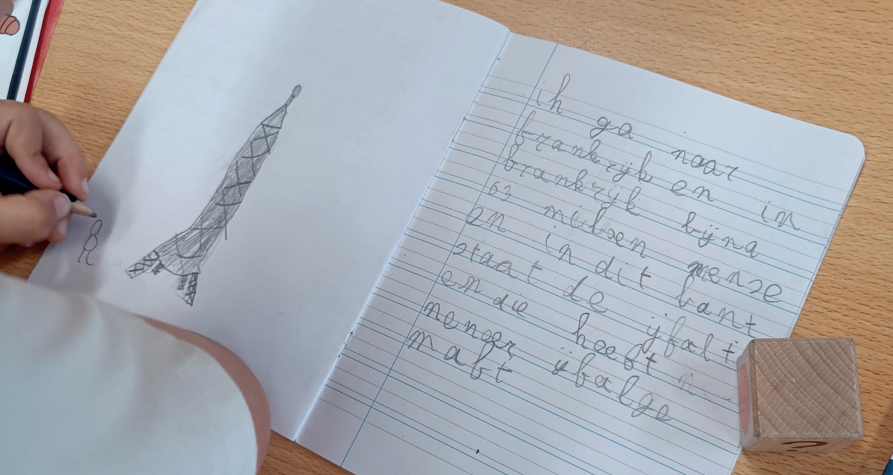 ik ga naar
frankrijk en in
frankrijk bijna
63 miljoen mense
en in dit lant
staat de ijfalt
en die heeft
meneer ijfalge
makt